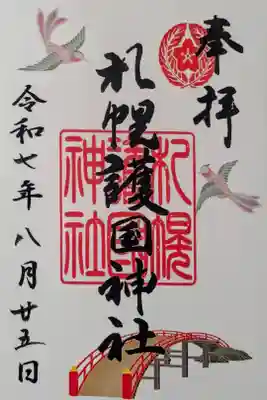 奉拝
札幌護国神社
札幌護国神社
令和七年八月廿五日